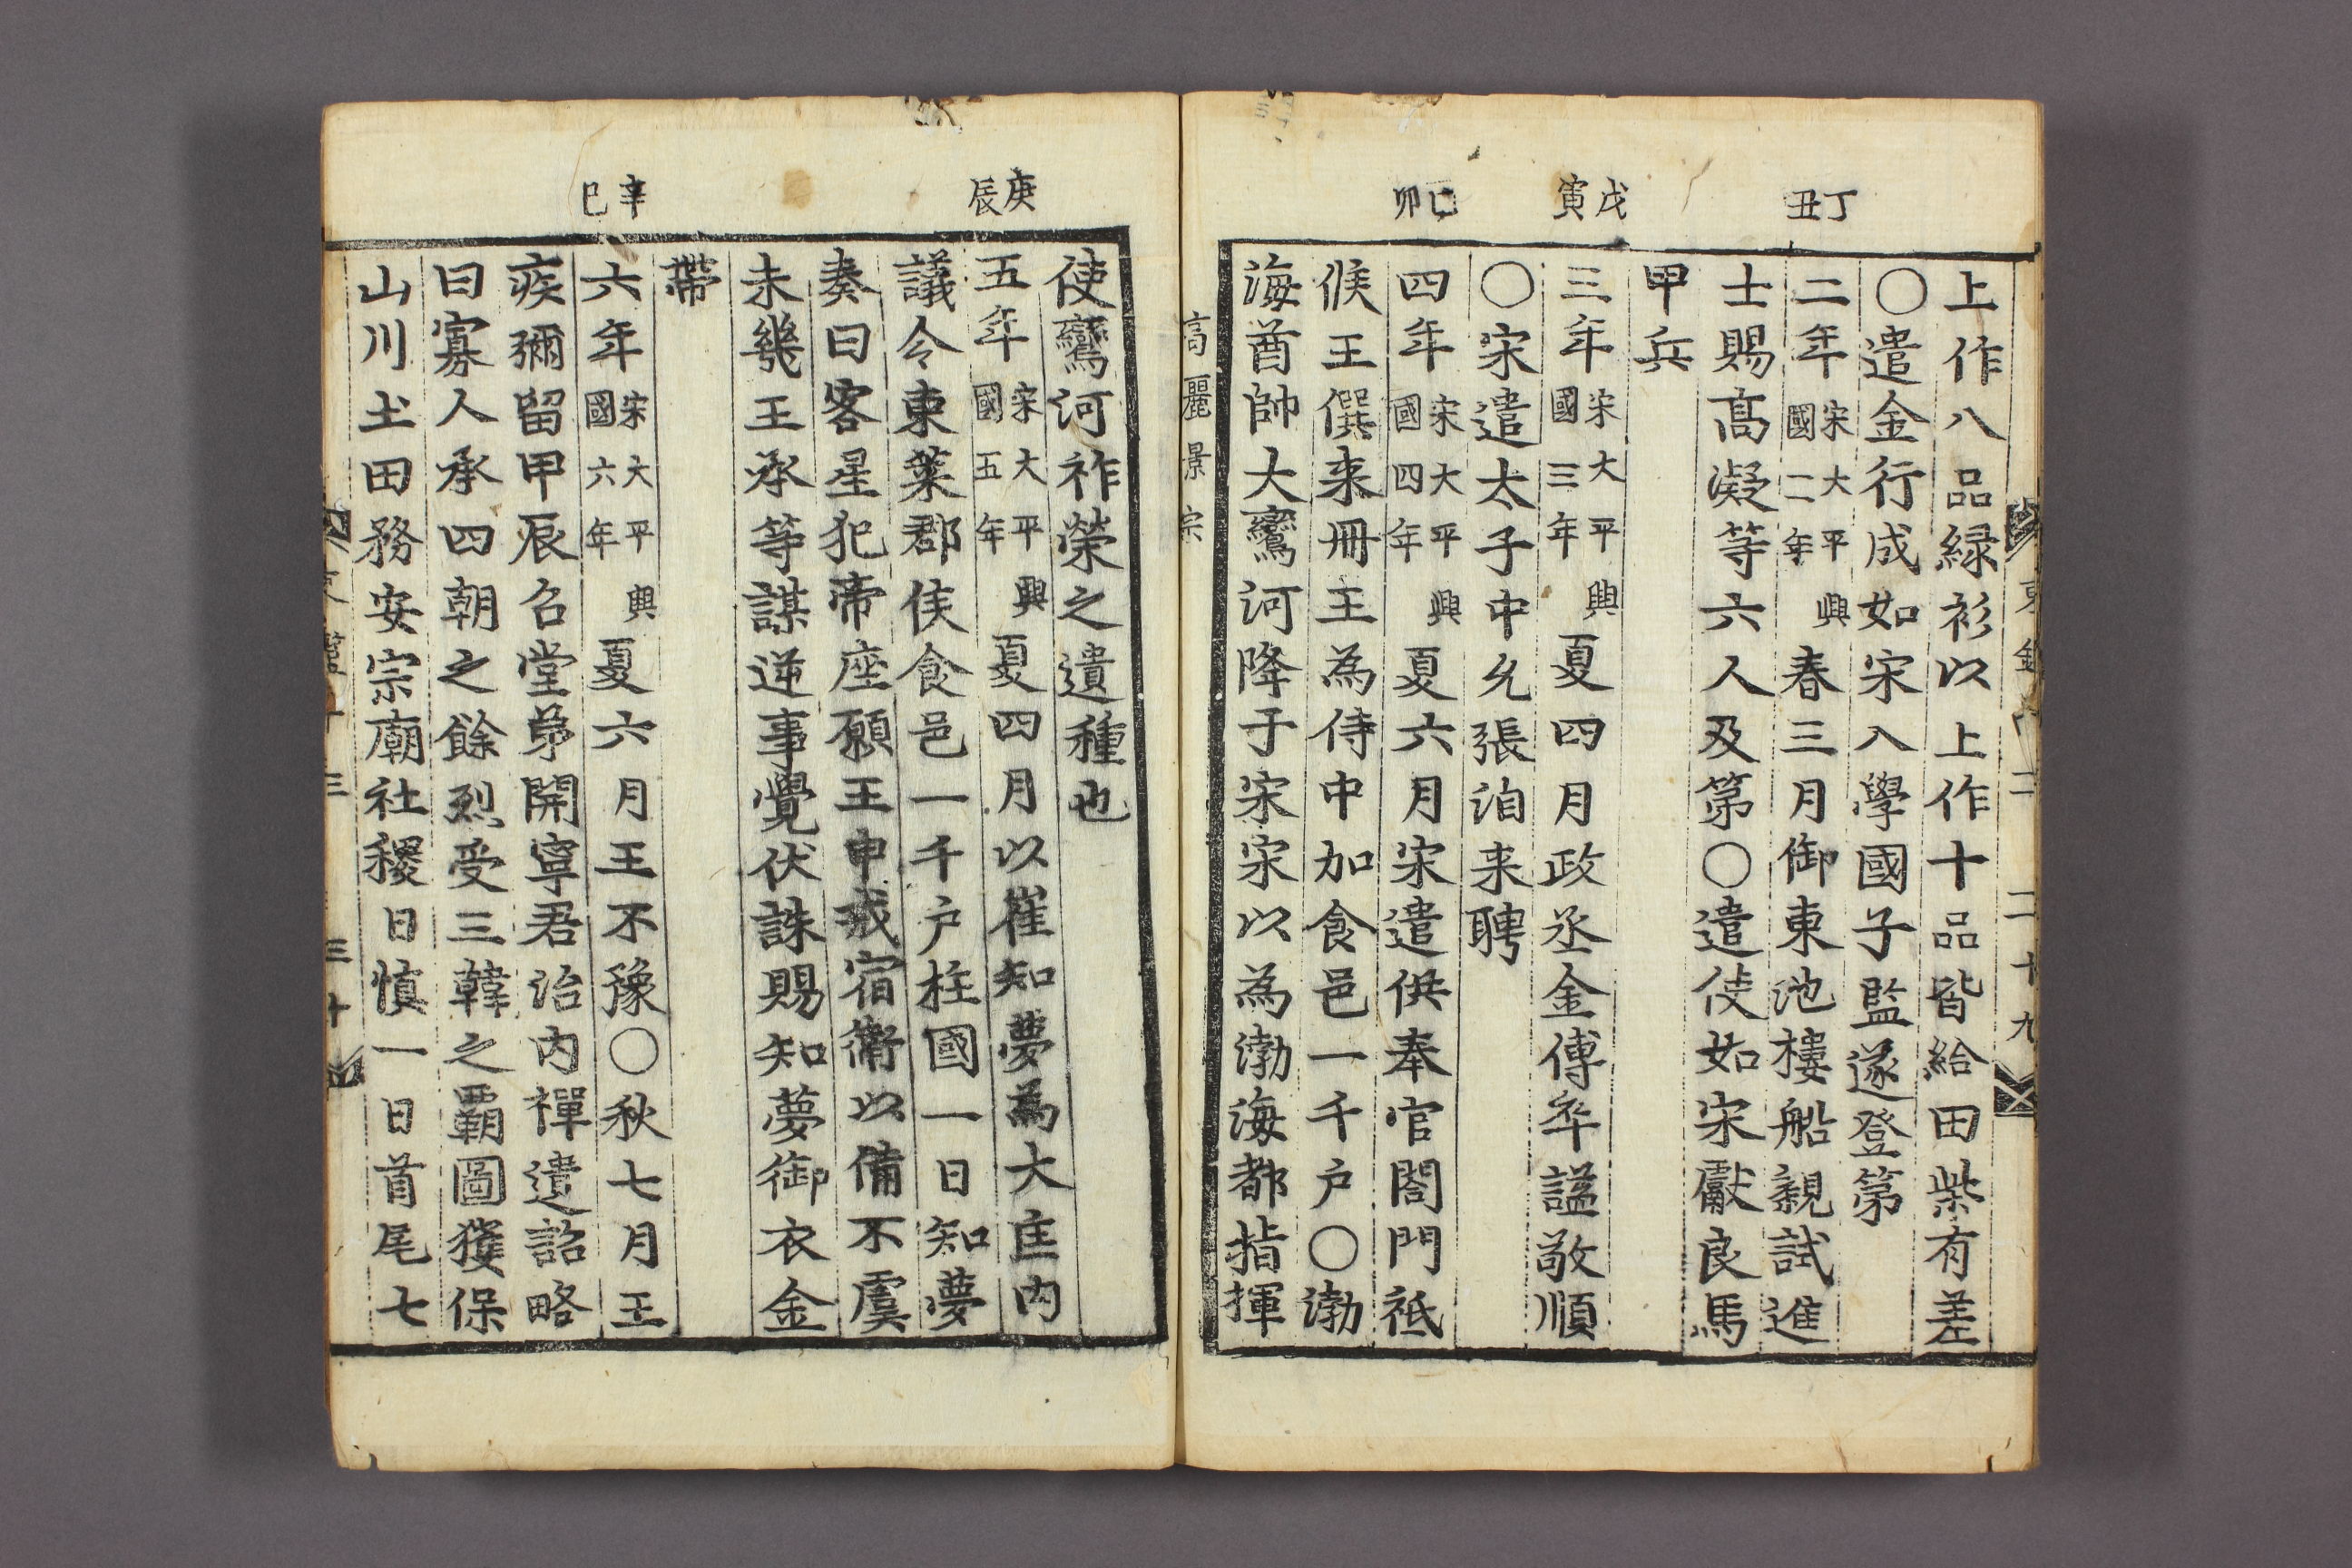 丁丑
戊寅
己卯
上作八品緑衫以上作十品皆給田柴有差
○遣金行成如宋入學國子監遂登第
二年宋大平興國二年春三月御東池樓船親試進
士賜髙凝等六人及第○遣使如宋獻良馬
甲兵
三年宋大平興國三年夏四月政丞金傅卒謚敬順
○宋遣太子中允張洎来聘
四年宋大平興國四年夏六月宋遣供奉官閤門祗
候王僎来冊王為侍中加食邑一千户○渤
海酋帥大鸞河降于宋宋以為渤海都指揮
高麗景宗
庚辰
辛巳
使鸞河祚榮之遺種也
五年宋大平興國五年夏四月以崔知夢為大匡内
議令東莱郡侯食邑一千户柱國一日知夢
奏曰客星犯帝座願王申戒宿衛以備不虞
未幾王承等謀逆事覺伏誅賜知夢御衣金
帶
六年宋大平興國六年夏六月王不豫○秋七月王
疾彌留甲辰召堂弟開寧君治内禪遺詔略
曰寡人承四朝之餘烈受三韓之覇圖獲保
山川土田務安宗廟社稷日慎一日首尾七